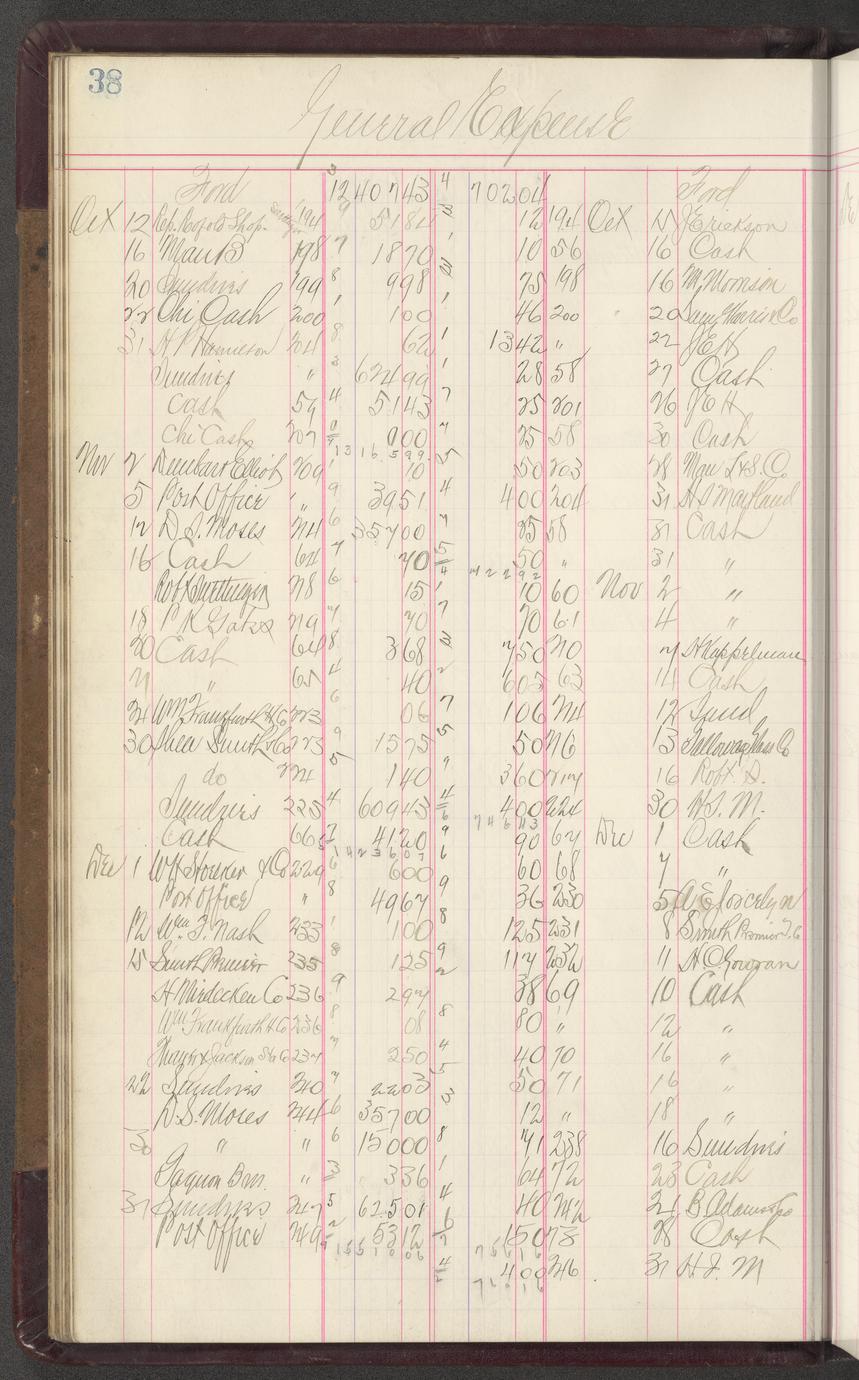 38
General Expense
Ford 12 40 743 70204 Ford
Oct 12 Rep. Shop. 194 5184 12 194 Oct 15 J Erickson
16 Man B 198 1870 10 56 16 Cash
20 Sundries 199 998 75 198 16 M. Morrison
22 Chi Cash 200 100 46 200 " 20 Co
31 H P Hamilson 204 62 1342 " 22 J E H
Sundries " 62499 28 58 27 Cash
Cash 59 5143 25 201 26 J E H
Chi Cash 207 900 25 58 30 Cash
1316599
Nov 2 Dunbart Elliot 209 10 50 203 28 Man Co
5 Post Office " 3951 400 204 31 H S Maryland
12 D. S. Moses 214 35700 25 58 31 Cash
16 Cash 64 70 50 " 31 "
72292
218 15 10 60 Nov 2 "
18 P K Gates 219 70 70 61 4 "
20 Cash 64 368 750 210 7 H Kappelman
21 " 65 40 605 63 14 Cash
24 Wm Frankfurth H Co 223 06 106 214 12 Sund
30 Shea Smith & Co 223 1575 50 216 13 Galloway Glass Co
do 224 140 360 217 16 Robt. S.
Sundries 225 60943 400 224 30 H. S. M.
Cash 66 4120 90 67 Dec 1 Cash
1423607 74643
Dec 1 W H Stowker & Co 229 600 60 68 7 "
Post Office " 4967 36 230 5 A E Joscelyn
12 Wm F. Nash 233 100 125 231 8 Smith Premier T. Co
15 Smith Premier 235 125 117 232 11 H C Gowran
H Nirdecken Co 236 297 38 69 10 Cash
Wm Frankfurth H Co 236 08 80 " 12 "
Thayer & Jackson Sta Co 237 250 40 70 16 "
22 Sundries 240 2203 50 71 16 "
D. S. Moses 244 35700 12 " 18 "
30 " " 15000 71 238 16 Sundries
Gagnon Bros. " 336 64 72 23 Cash
31 Sundries 247 62501 40 242 24 B. Adams Co
Post Office 249 5312 150 73 28 Cash
1551006 75616
400 246 31 H. S. M